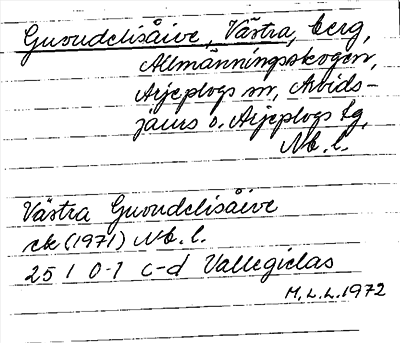 Guoudelisåive, Västra, berg,
Allmänningsskogen,
Arjeplogs sn, Arvids-
jaurs o. Arjeplogs tg,
Nb. l.
Västra Guoudelisåive
ek (1971) Nb. l.
25 I 0-1 c-d Vallegielas
M. L. L. 1972